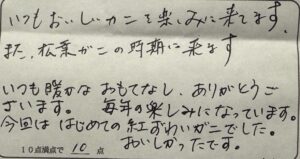 いつもおいしいカニを楽しみに来てます。
また、松葉がニの時期に来ます
いつも暖かなおもてなし、ありがとうご
ざいます。毎年の楽しみになっています。
今回ははじめての紅ずわいガニでした。
おいしかったです。
10点満点で 10 点